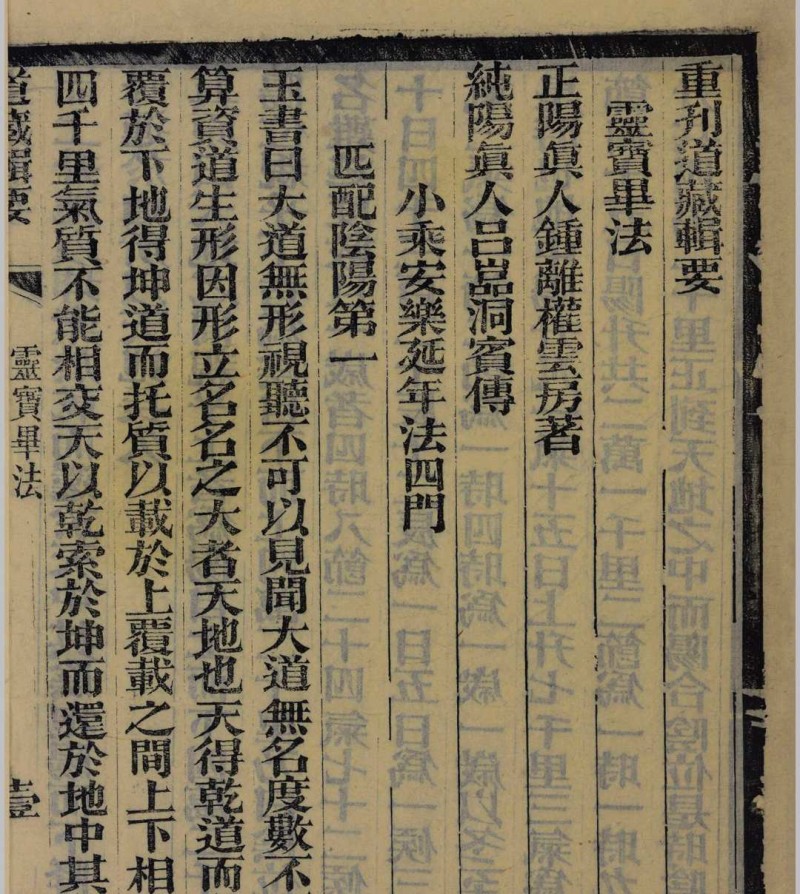 重刊道藏輯要
靈寶畢法
正陽眞人鍾離權雲房著
純陽眞人呂嵓洞賓傳
小乘安樂延年法四門
匹配陰陽第一
玉書曰大道無形視聽不可以見聞大道無名度數不
算資道生形因形立名名之大者天地也天得乾道而
覆於下地得坤道而托質以載於上覆載之間上下相
四千里氣質不能相交天以乾索於坤而還於地中其
道藏輯要
靈寶畢法
壹